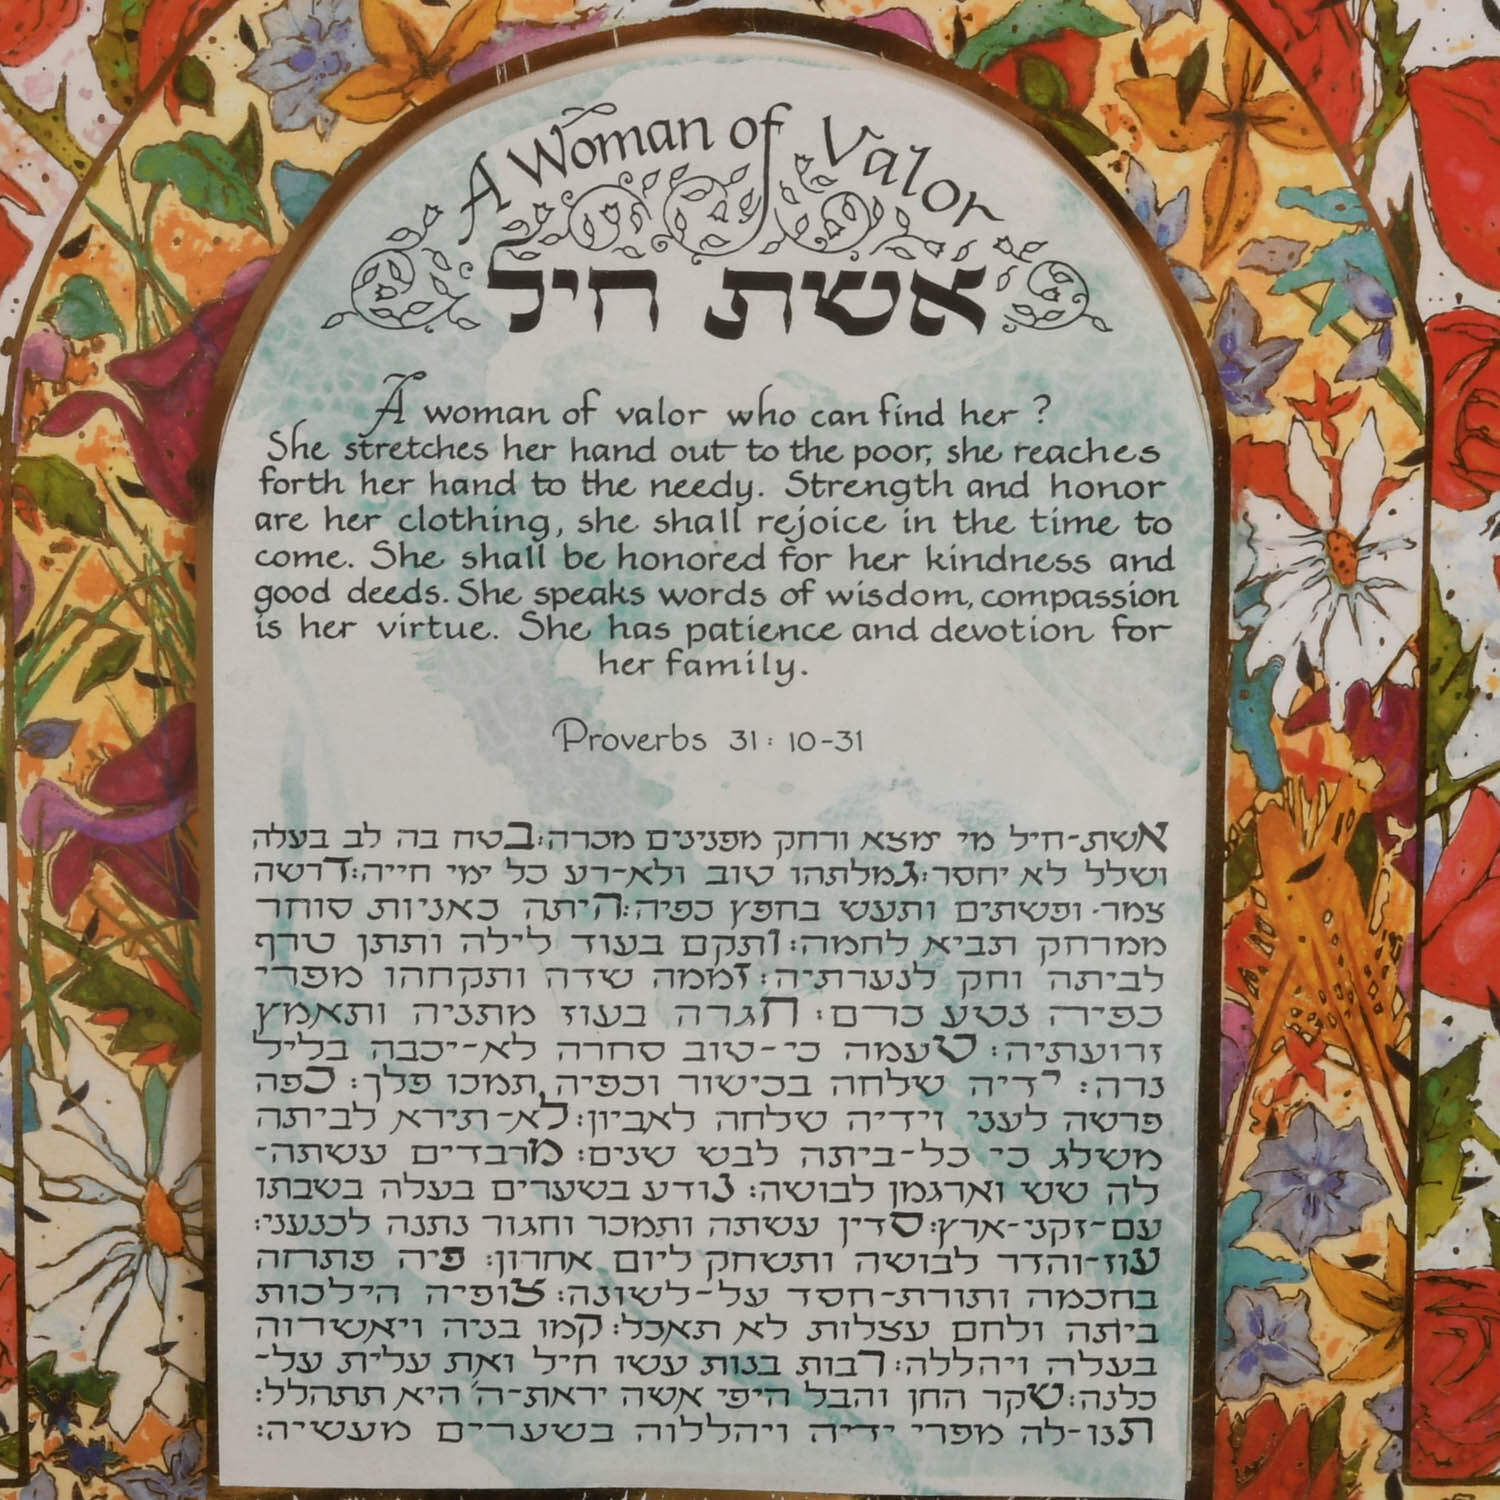 A Woman of Valor
אשת חיל
A woman of valor who can find her ?
She stretches her hand out to the poor, she reaches
forth her hand to the needy. Strength and honor
are her clothing, she shall rejoice in the time to
come. She shall be honored for her kindness and
good deeds. She speaks words of wisdom, compassion
is her virtue. She has patience and devotion for
her family.
Proverbs 31: 10-31
אשת-חיל מי ימצא ורחק מפנינים מכרה: בטח בה לב בעלה
ושלל לא יחסר: גמלתהו טוב ולא-רע כל ימי חייה: דרשה
צמר ופשתים ותעש בחפץ כפיה: היתה כאניות סוחר
ממרחק תביא לחמה: ותקם בעוד לילה ותתן טרף
לביתה וחק לנערתיה: זממה שדה ותקחהו מפרי
כפיה נטע כרם: חגרה בעוז מתניה ותאמץ
זרועתיה: טעמה כי-טוב סחרה לא-יכבה בליל
נרה: ידיה שלחה בכישור וכפיה תמכו פלך: כפה
פרשה לעני וידיה שלחה לאביון: לא-תירא לביתה
משלג כי כל-ביתה לבש שנים: מרבדים עשתה-
לה שש וארגמן לבושה: נודע בשערים בעלה בשבתו
עם-זקני-ארץ: סדין עשתה ותמכר וחגור נתנה לכנעני:
עוז-והדר לבושה ותשחק ליום אחרון: פיה פתחה
בחכמה ותורת-חסד על-לשונה: צופיה הילכות
ביתה ולחם עצלות לא תאכל: קמו בניה ויאשרוה
בעלה ויהללה: רבות בנות עשו חיל ואת עלית על-
כלנה: שקר החן והבל היפי אשה יראת-ה' היא תתהלל:
תנו-לה מפרי ידיה ויהללוה בשערים מעשיה: